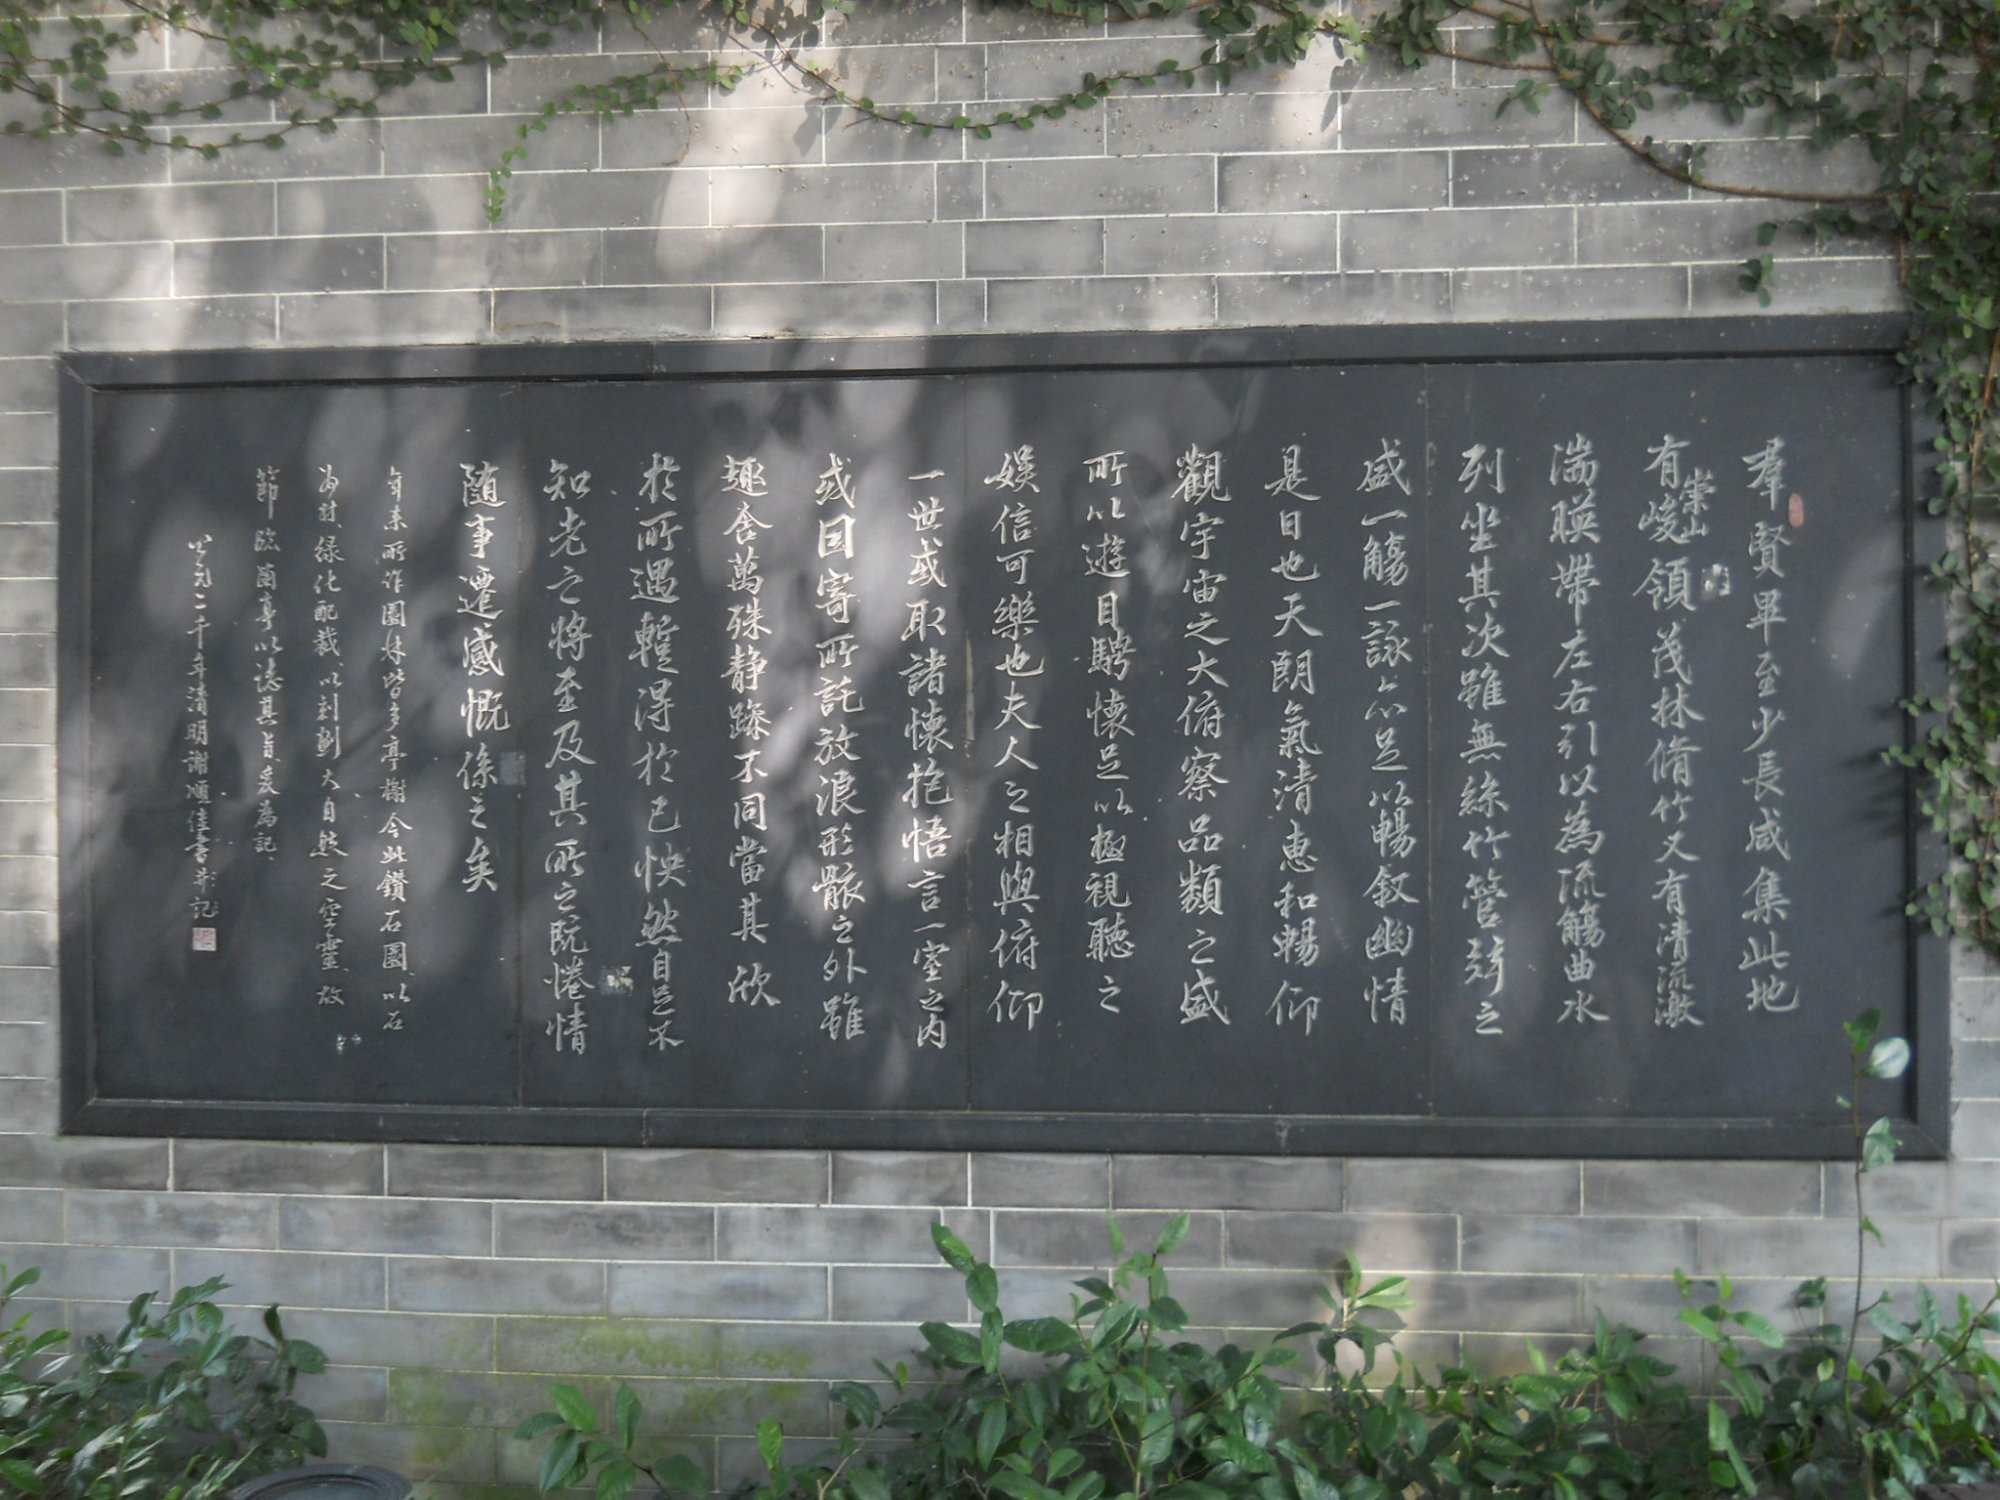 羣賢畢至少長咸集此地
有崇山峻領茂林脩竹又有清流激
湍暎帶左右引以為流觴曲水
列坐其次雖無絲竹管弦之
盛一觴一詠亦足以暢叙幽情
是日也天朗氣清惠和暢仰
觀宇宙之大俯察品類之盛
所以遊目騁懷足以極視聽之
娱信可樂也夫人之相與俯仰
一世或取諸懷抱悟言一室之内
或因寄所託放浪形骸之外雖
趣舍萬殊静躁不同當其欣
於所遇蹔得於己怏然自足不
知老之將至及其所之既惓情
随事遷感慨係之矣
年来所作園林皆多亭榭今此鑽石園以石
為材綠化配裁以刻劃大自然之空靈故
節臨蘭亭以誌其旨爰為記
公元二千年清明謝順佳書并記